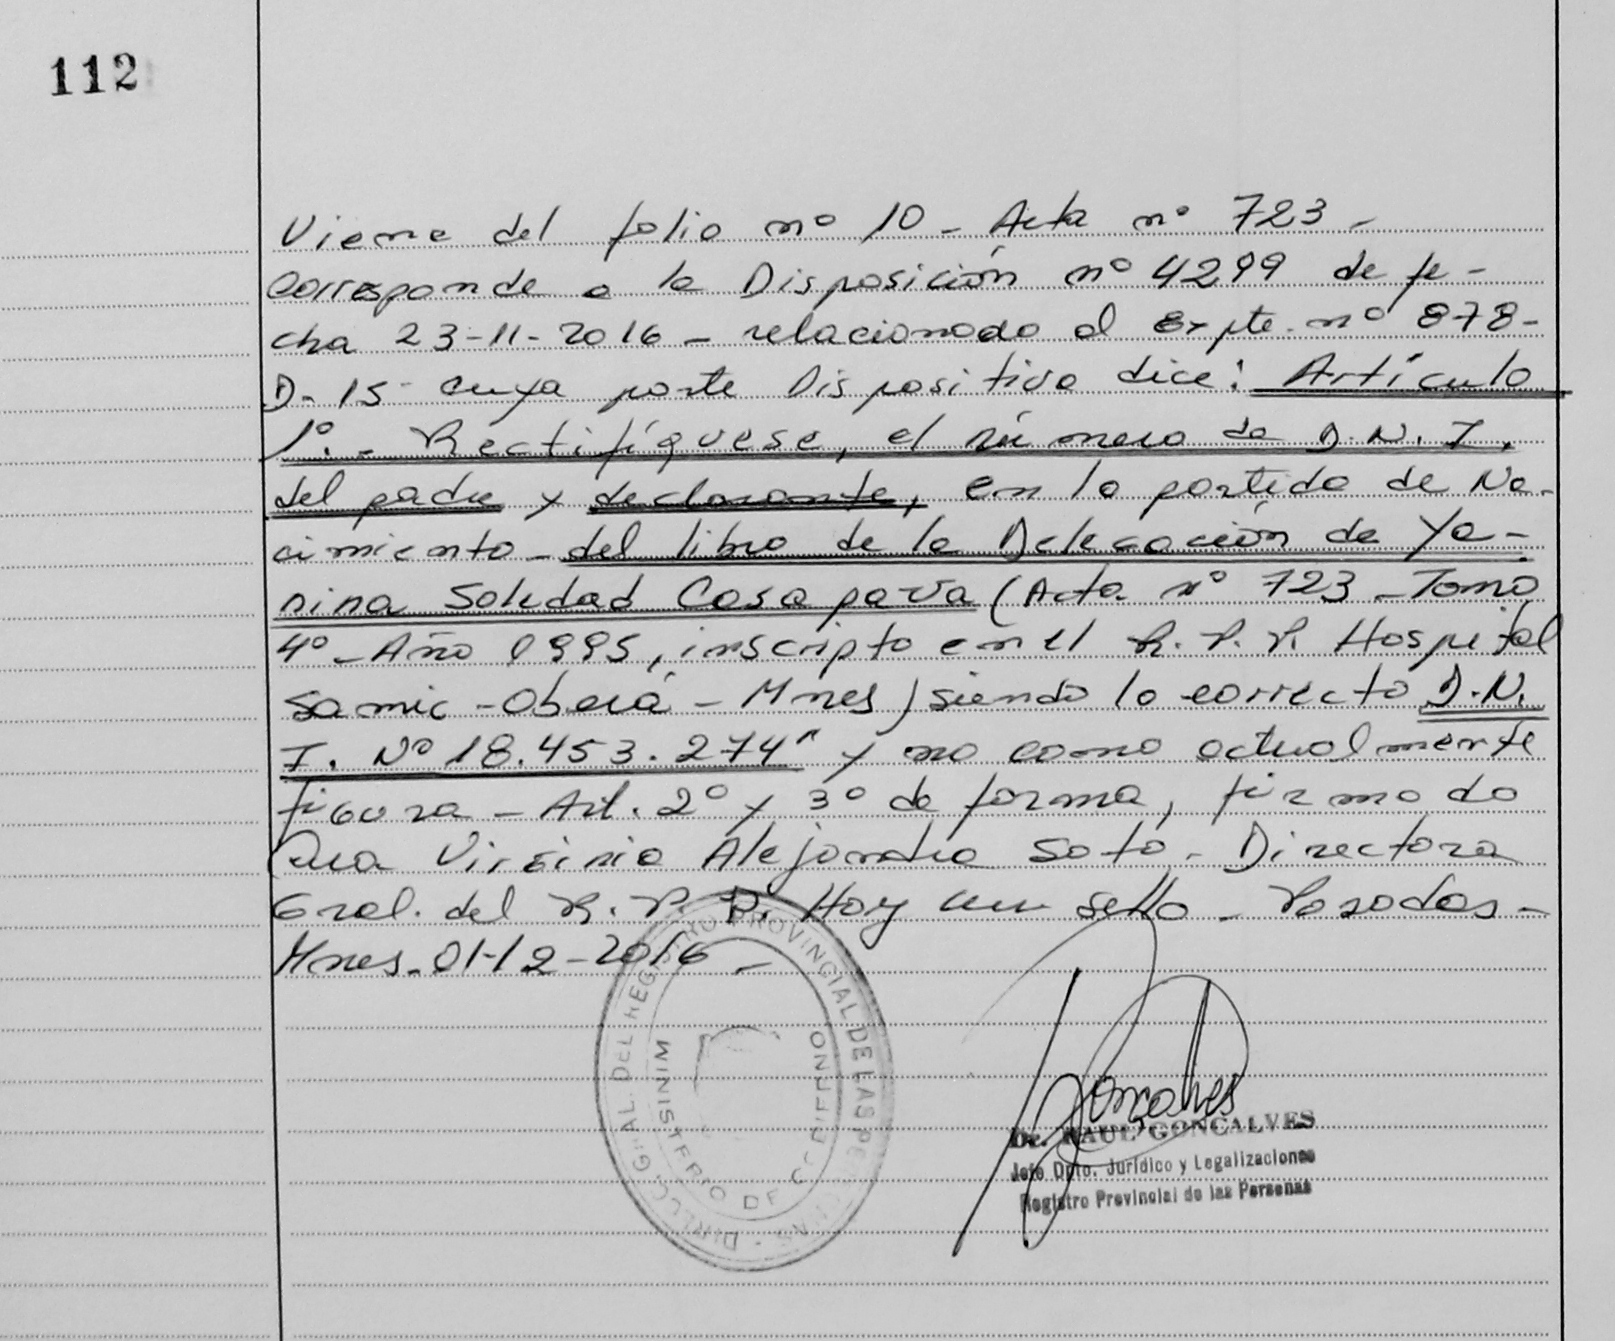 112
Viene del folio nº 10 - Acta nº 723 -
corresponde a la Disposición nº 4299 de fe-
cha 23-11-2016 - relacionado al Expte. nº 878-
D-15- cuya parte Dispositiva dice: Artículo
1º.- Rectifíquese, el número de D.N.I.
del padre y declarante, en la partida de Na-
cimiento - del libro de la Delegación de Ya-
nina Soledad Casapava (Acta nº 723 - Tomo
4º - Año 1995, inscripto en el R.P.P. Hospital
Samic - Oberá - Mnes) siendo lo correcto D.N.
I. Nº 18.453.274" y no como actualmente
figura - Art. 2º y 3º de forma, firmado
Dra Virginia Alejandra Soto - Directora
Gral. del R.P.P. Hay un sello - Posadas -
Mnes - 01-12-2016 -
DIRECC. GRAL. DEL REGISTRO PROVINCIAL DE LAS PERSONAS
MINISTERIO DE GOBIERNO
Goncalves
Dr. RAUL GONCALVES
Jefe Dpto. Jurídico y Legalizaciones
Registro Provincial de las Personas